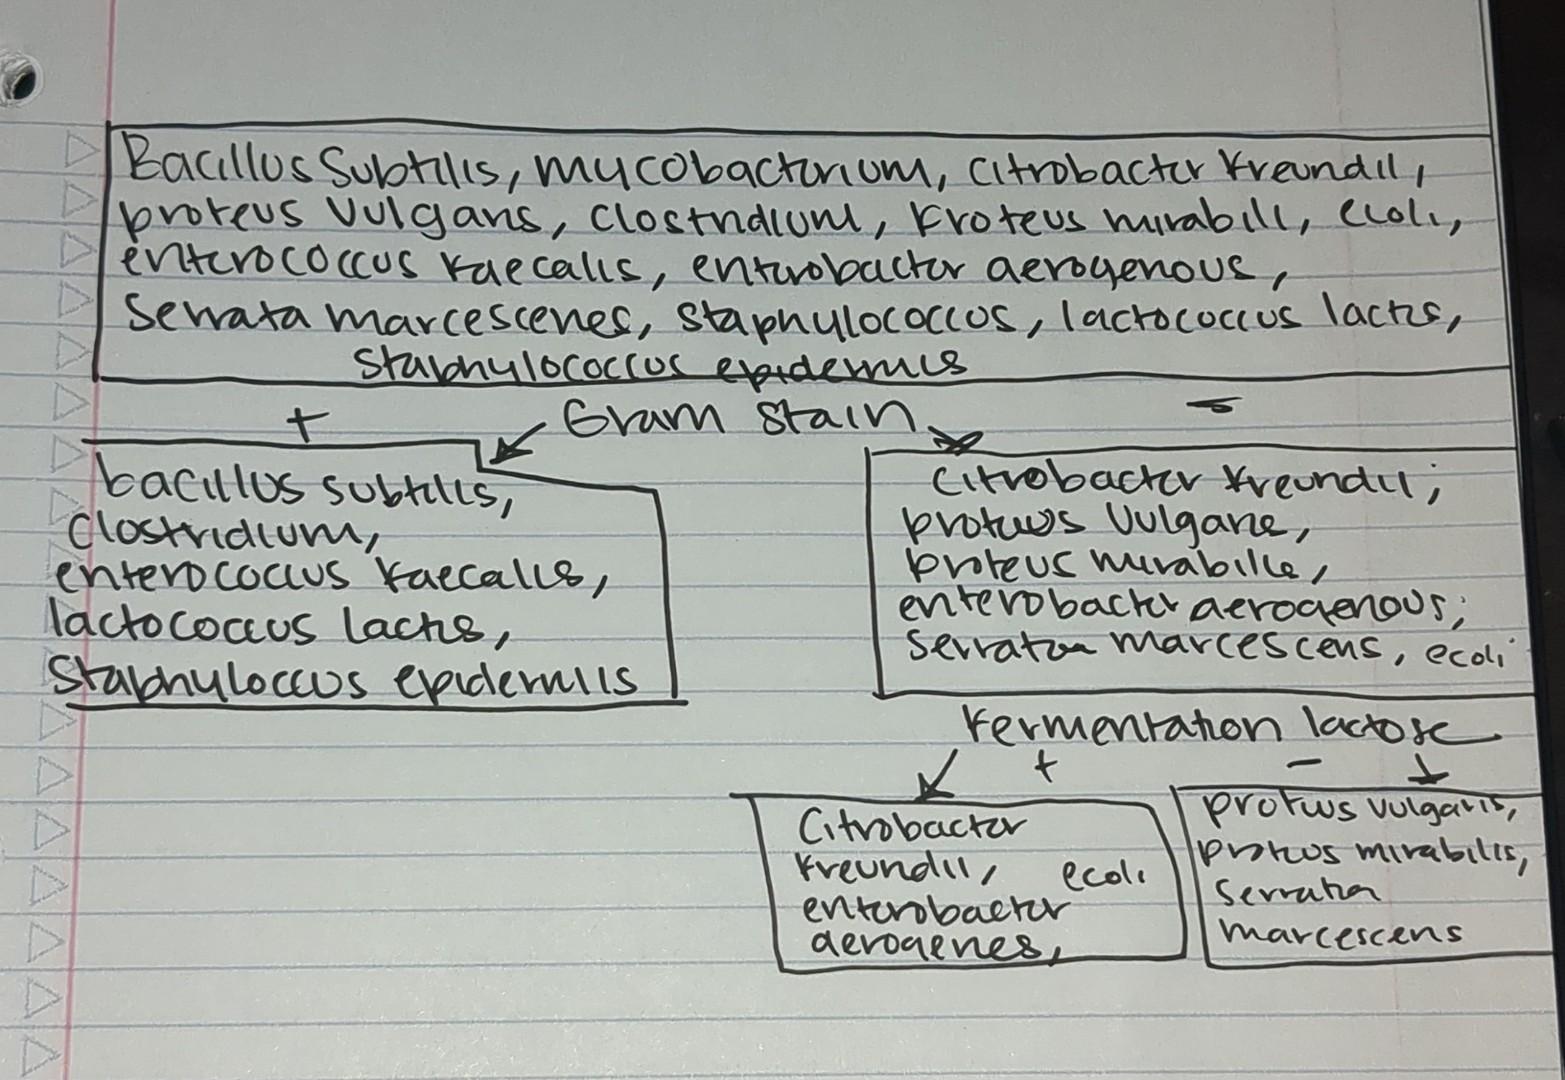 Bacillus Subtilis, mycobacterium, Citrobacter freundii,
proteus Vulgaris, Clostridium, Proteus mirabili, ecoli,
enterococcus faecalis, enterobacter aerogenous,
Serrata marcescenes, staphylococcus, lactococcus lactis,
Staphylococcus epidermis
+ Gram Stain -
bacillus subtilis,
Clostridium,
enterococcus faecalis,
lactococcus lactis,
Staphyloccus epidermiis
Citrobacter freundii,
proteus Vulgaris,
proteus mirabilis,
enterobacter aerogenous,
Serratia marcescens, ecoli
Fermentation lactose
+ -
Citrobacter
freundii, ecoli
enterobacter
aerogenes,
proteus vulgaris,
proteus mirabilis,
Serratia
marcescens